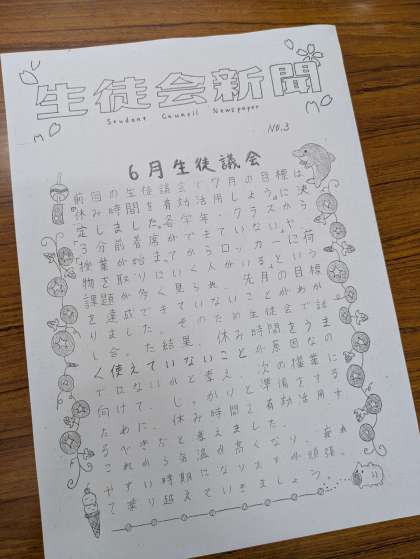 生徒会新聞
Student Council Newspaper
No.3
6月生徒議会
前回の生徒議会で7月の目標は
「休み時間を有効活用しよう」に決
定しました。各学年・クラスから
「3分前着席ができていない」や
「授業が始まってからロッカーに荷
物を取りに行く人がいる」という
課題が多く見られ、先月の目標
を達成できていないことがわか
りました。そのため生徒会で話
し合った結果、休み時間をうま
く使えていないことが原因なの
ではないかと考え、次の授業に
向けて、しっかりと準備をする
ために、休み時間を有効活用す
るべきだと考えました。
これから気温が高くなり、疲れ
やすい時期になりますが頑張っ
て乗り越えていきましょう